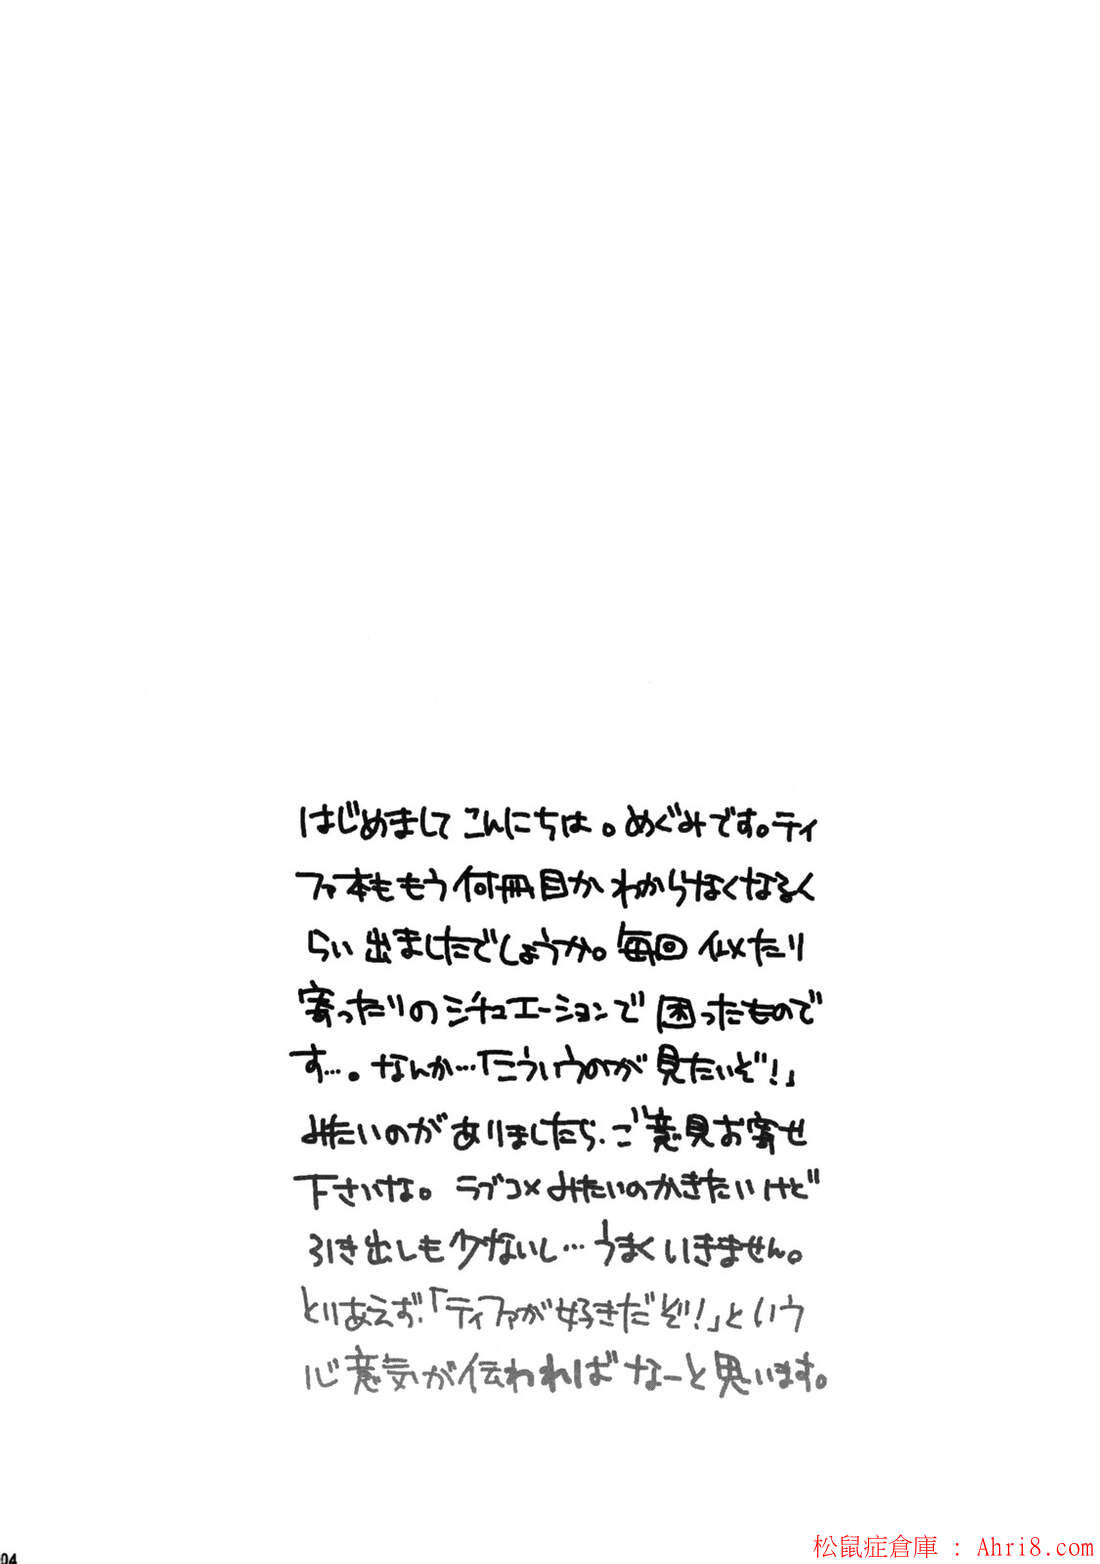 はじめまして こんにちは。めぐみです。ティ
ファ本ももう何冊目かわからなくなるく
らい出ましたでしょうか。毎回似たり
寄ったりのシチュエーションで困ったもので
す…。なんか…「こういうのが見たいぞ!」
みたいのがありましたら、ご意見お寄せ
下さいな。ラブコメみたいのかきたいけど
引き出しも少ないし…うまくいきません。
とりあえず、「ティファが好きだぞ!」という
心意気が伝わればなーと思います。
04
松鼠症倉庫 : Ahri8.com